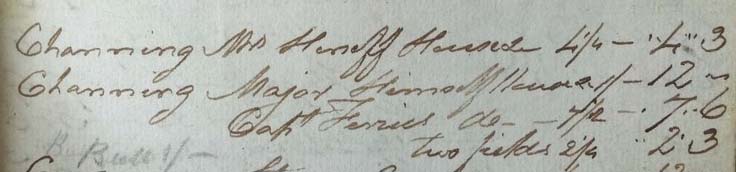 Channing Mrs Herself House 4/4 – " 4 " 3
Channing Major Himself House s/– 12 "
Capt Ferris do – 7/2 – " 7 " 6
two fields 2/4 " 2 " 3
Bull s/–